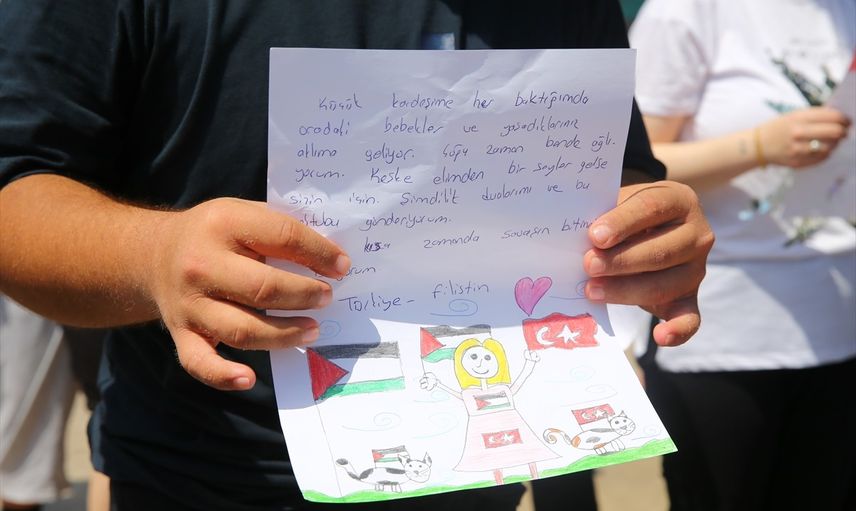 Küçük kardeşime her baktığımda
oradaki bebekler ve yaşadıklarınız
aklıma geliyor. Çoğu zaman bende ağlı-
yorum. Keşke elimden bir şeyler gelse
sizin için. Şimdilik dualarımı ve bu
gönderiyorum.
kısa zamanda savaşın
Türkiye - filistin